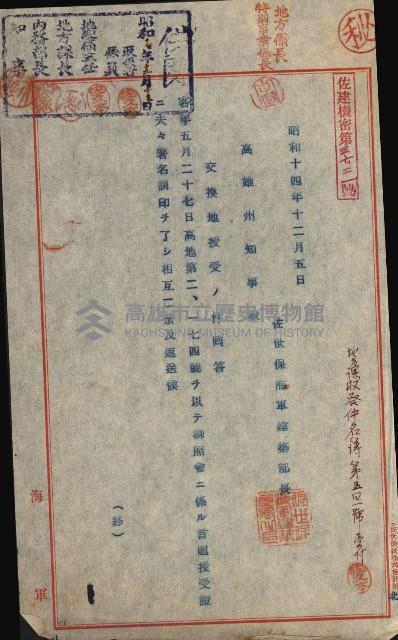 秘
地方係長
特別業務係長
佐建機密第三七二一號
昭和十四年十二月五日
佐世保海軍建築部長
高雄州知事殿
交換地授受ノ件回答
客年五月二十七日高地第二、一七四號ヲ以テ御照會ニ係ル首題授受證
ニ夫々署名調印ヲ了シ相互一部及返送候
(終)
供覽
主務係員
地籍主任
地方課長
内務部長
知事
高雄市立歷史博物館
KAOHSIUNG MUSEUM OF HISTORY
海軍